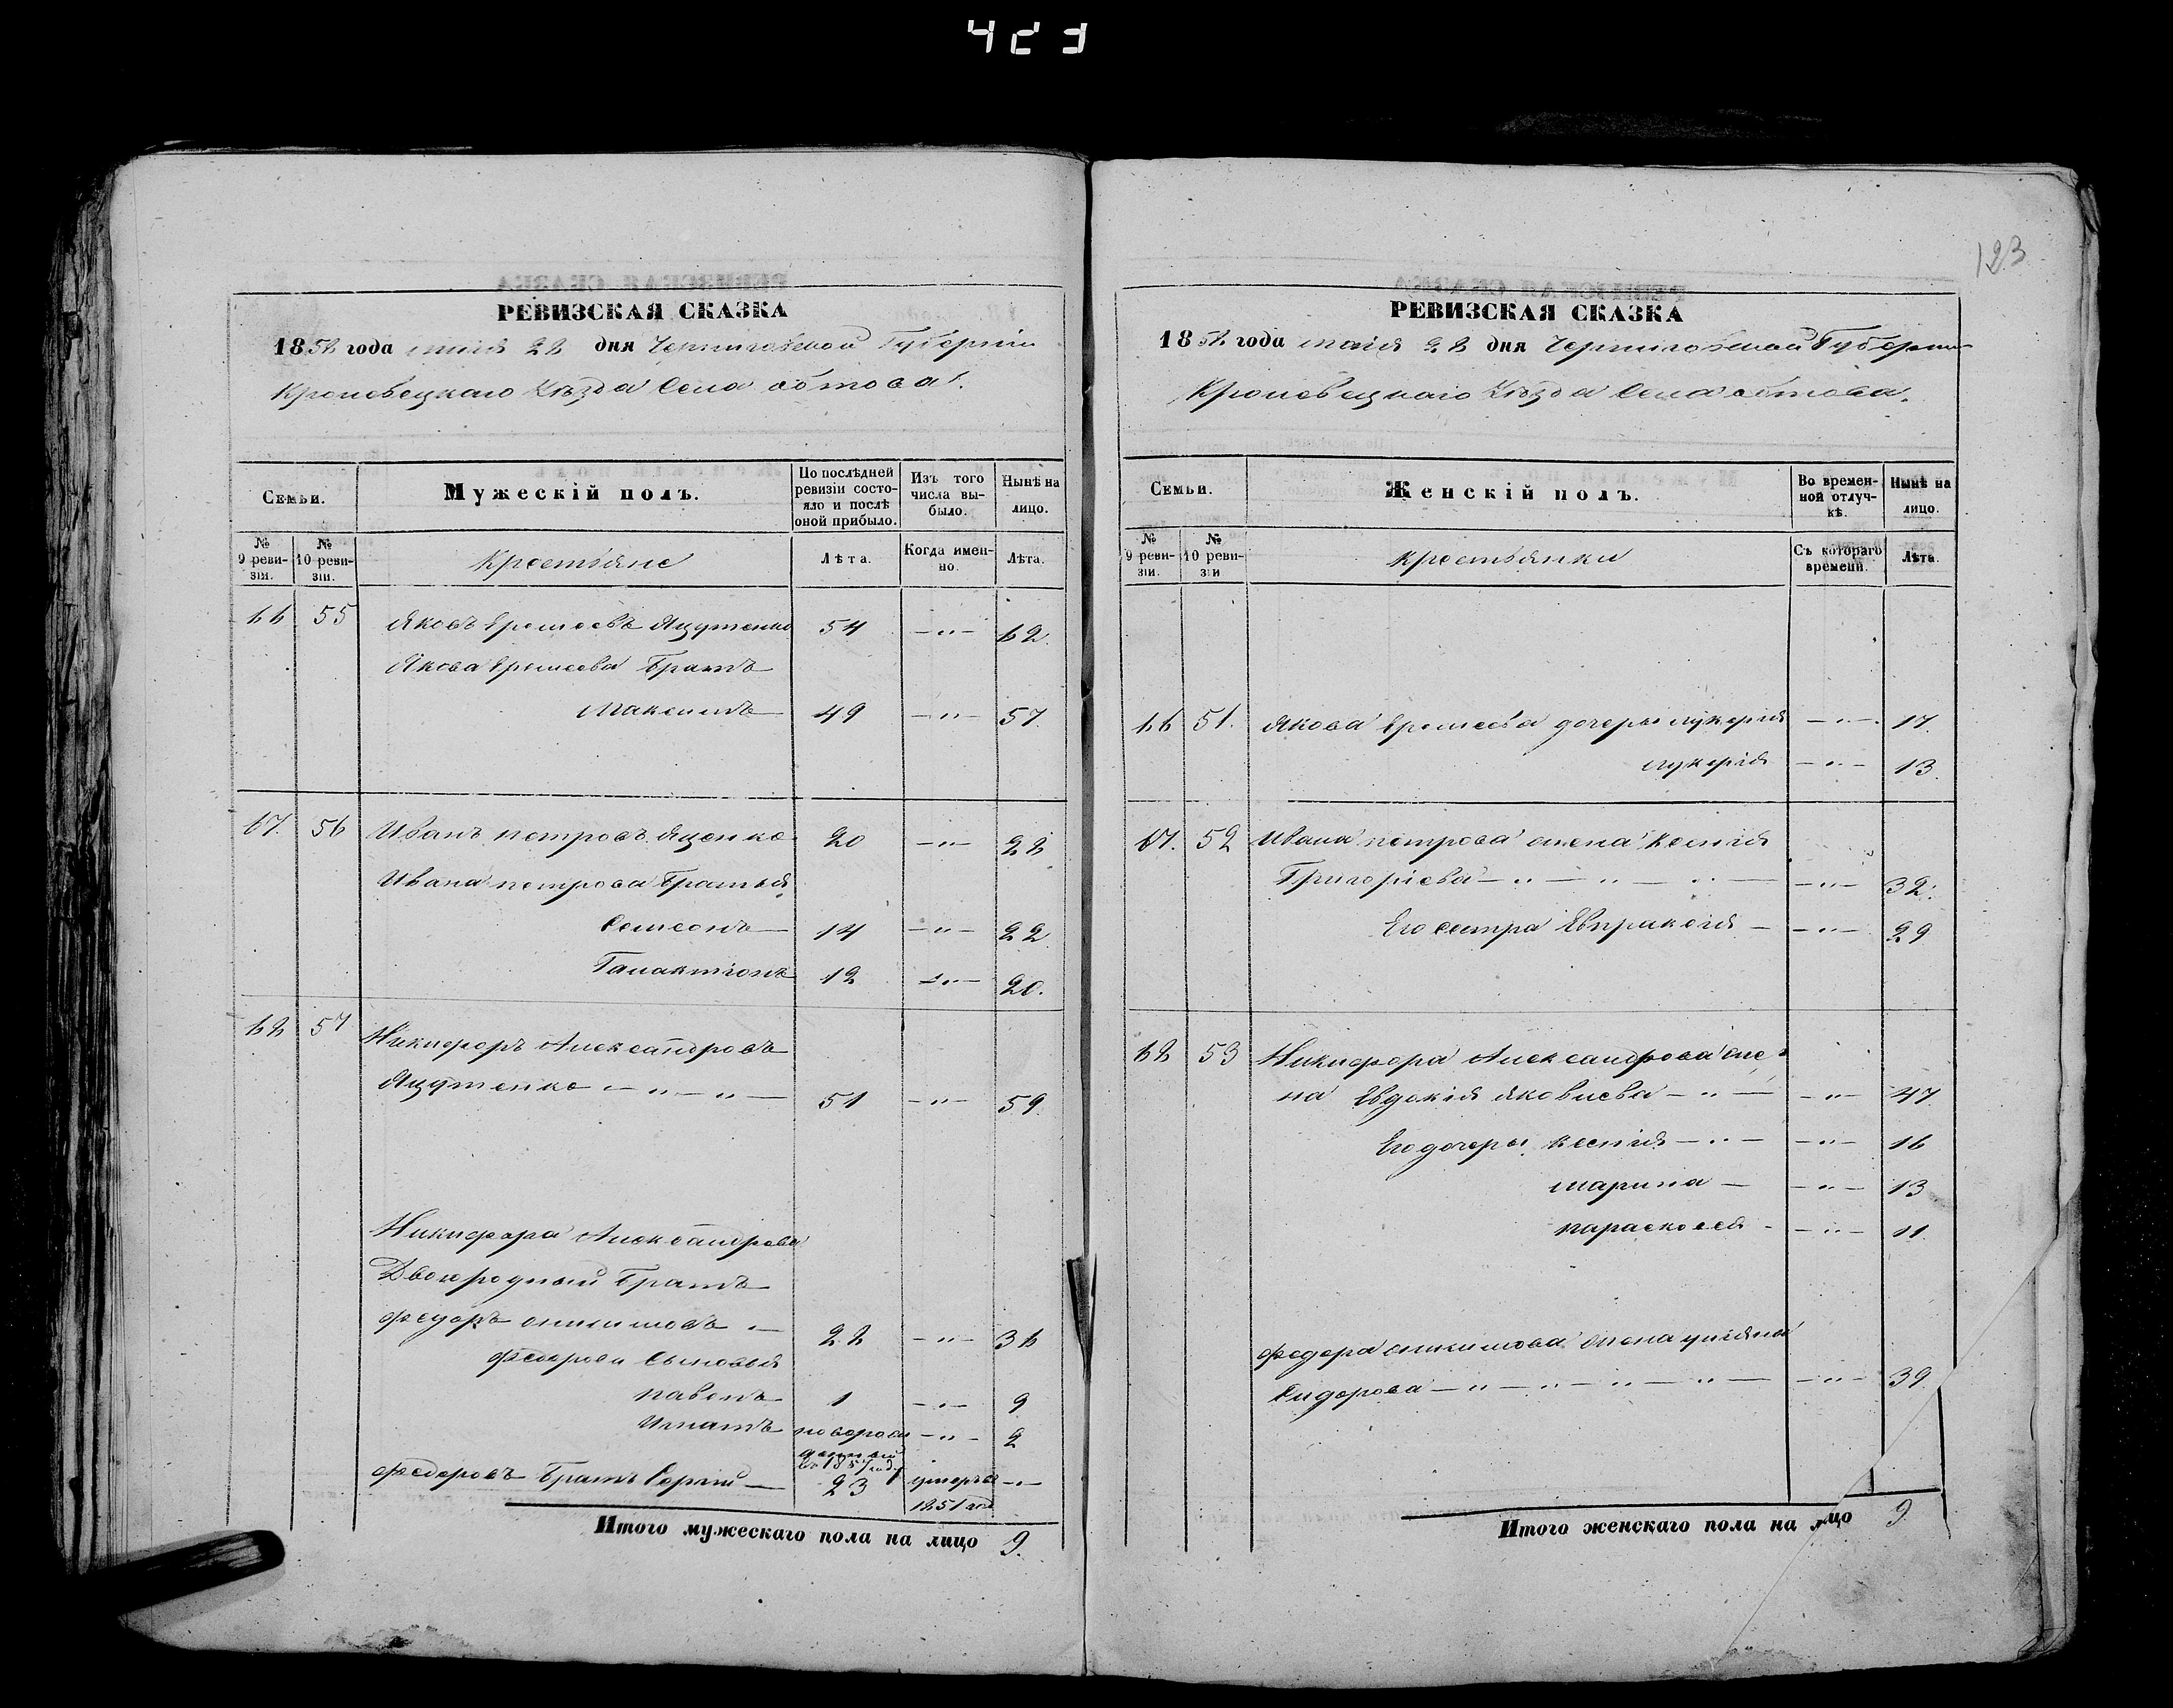 423
123
РЕВИЗСКАЯ СКАЗКА
1858 года маія 28 дня Черниговской Губерніи
Кролевецкаго Уѣзда Села Обтова.
Семьи.
Мужескій полъ.
По послѣдней ревизіи состояло и послѣ оной прибыло.
Изъ того числа выбыло.
Нынѣ на лицо.
№ 9 ревизіи.
№ 10 ревизіи.
Крестьяне
Лѣта.
Когда именно.
Лѣта.
66 55 Яковъ Ереместь Яцутенко 54 —"— 62.
Якова Еремеева Братъ
Максимъ 49 —"— 57.
67. 56 Иванъ Петровъ Яценко 20 —"— 28.
Ивана Петрова Братья
Семеонъ 14 —"— 22.
Галактіонъ 12 —"— 20.
68 57 Никифоръ Александровъ
Яцутенко —"—"— 51 —"— 59.
Никифора Александрова
Двоюродный Братъ
Федоръ 28 —"— 36
Федорова Сыновья
Павелъ 1 —"— 9
Игнатъ новорожденный въ 1857 году —"— 2
Федоровъ Братъ Сергій — 23 умеръ въ 1851 году —"—
Итого мужескаго пола на лицо 9.
РЕВИЗСКАЯ СКАЗКА
1858 года маія 28 дня Черниговской Губерніи
Кролевецкаго Уѣзда Села Обтова.
Семьи.
Женскій полъ.
Во временной отлучкѣ.
Нынѣ на лицо.
№ 9 ревизіи.
№ 10 ревизіи
Крестьянки
Съ котораго времени.
Лѣта.
66 51. Якова Еремеева дочеры Лукерія —"— 17.
Лукерія —"— 13.
67. 52 Ивана Петрова жена Ксенія
Григоріева —"—"—"— —"— 32.
Его сестра Евпраксія — —"— 29
68 53 Никифора Александрова же-
на Евдокія Яковлева —"— —"— 47.
Его дочеры Ксенія —"— —"— 16
Марина — —"— 13
Парасковея - —"— 11
Федора жена Уліяна
Сидорова —"—"—"—"— —"— 39.
Итого женскаго пола на лицо 9.